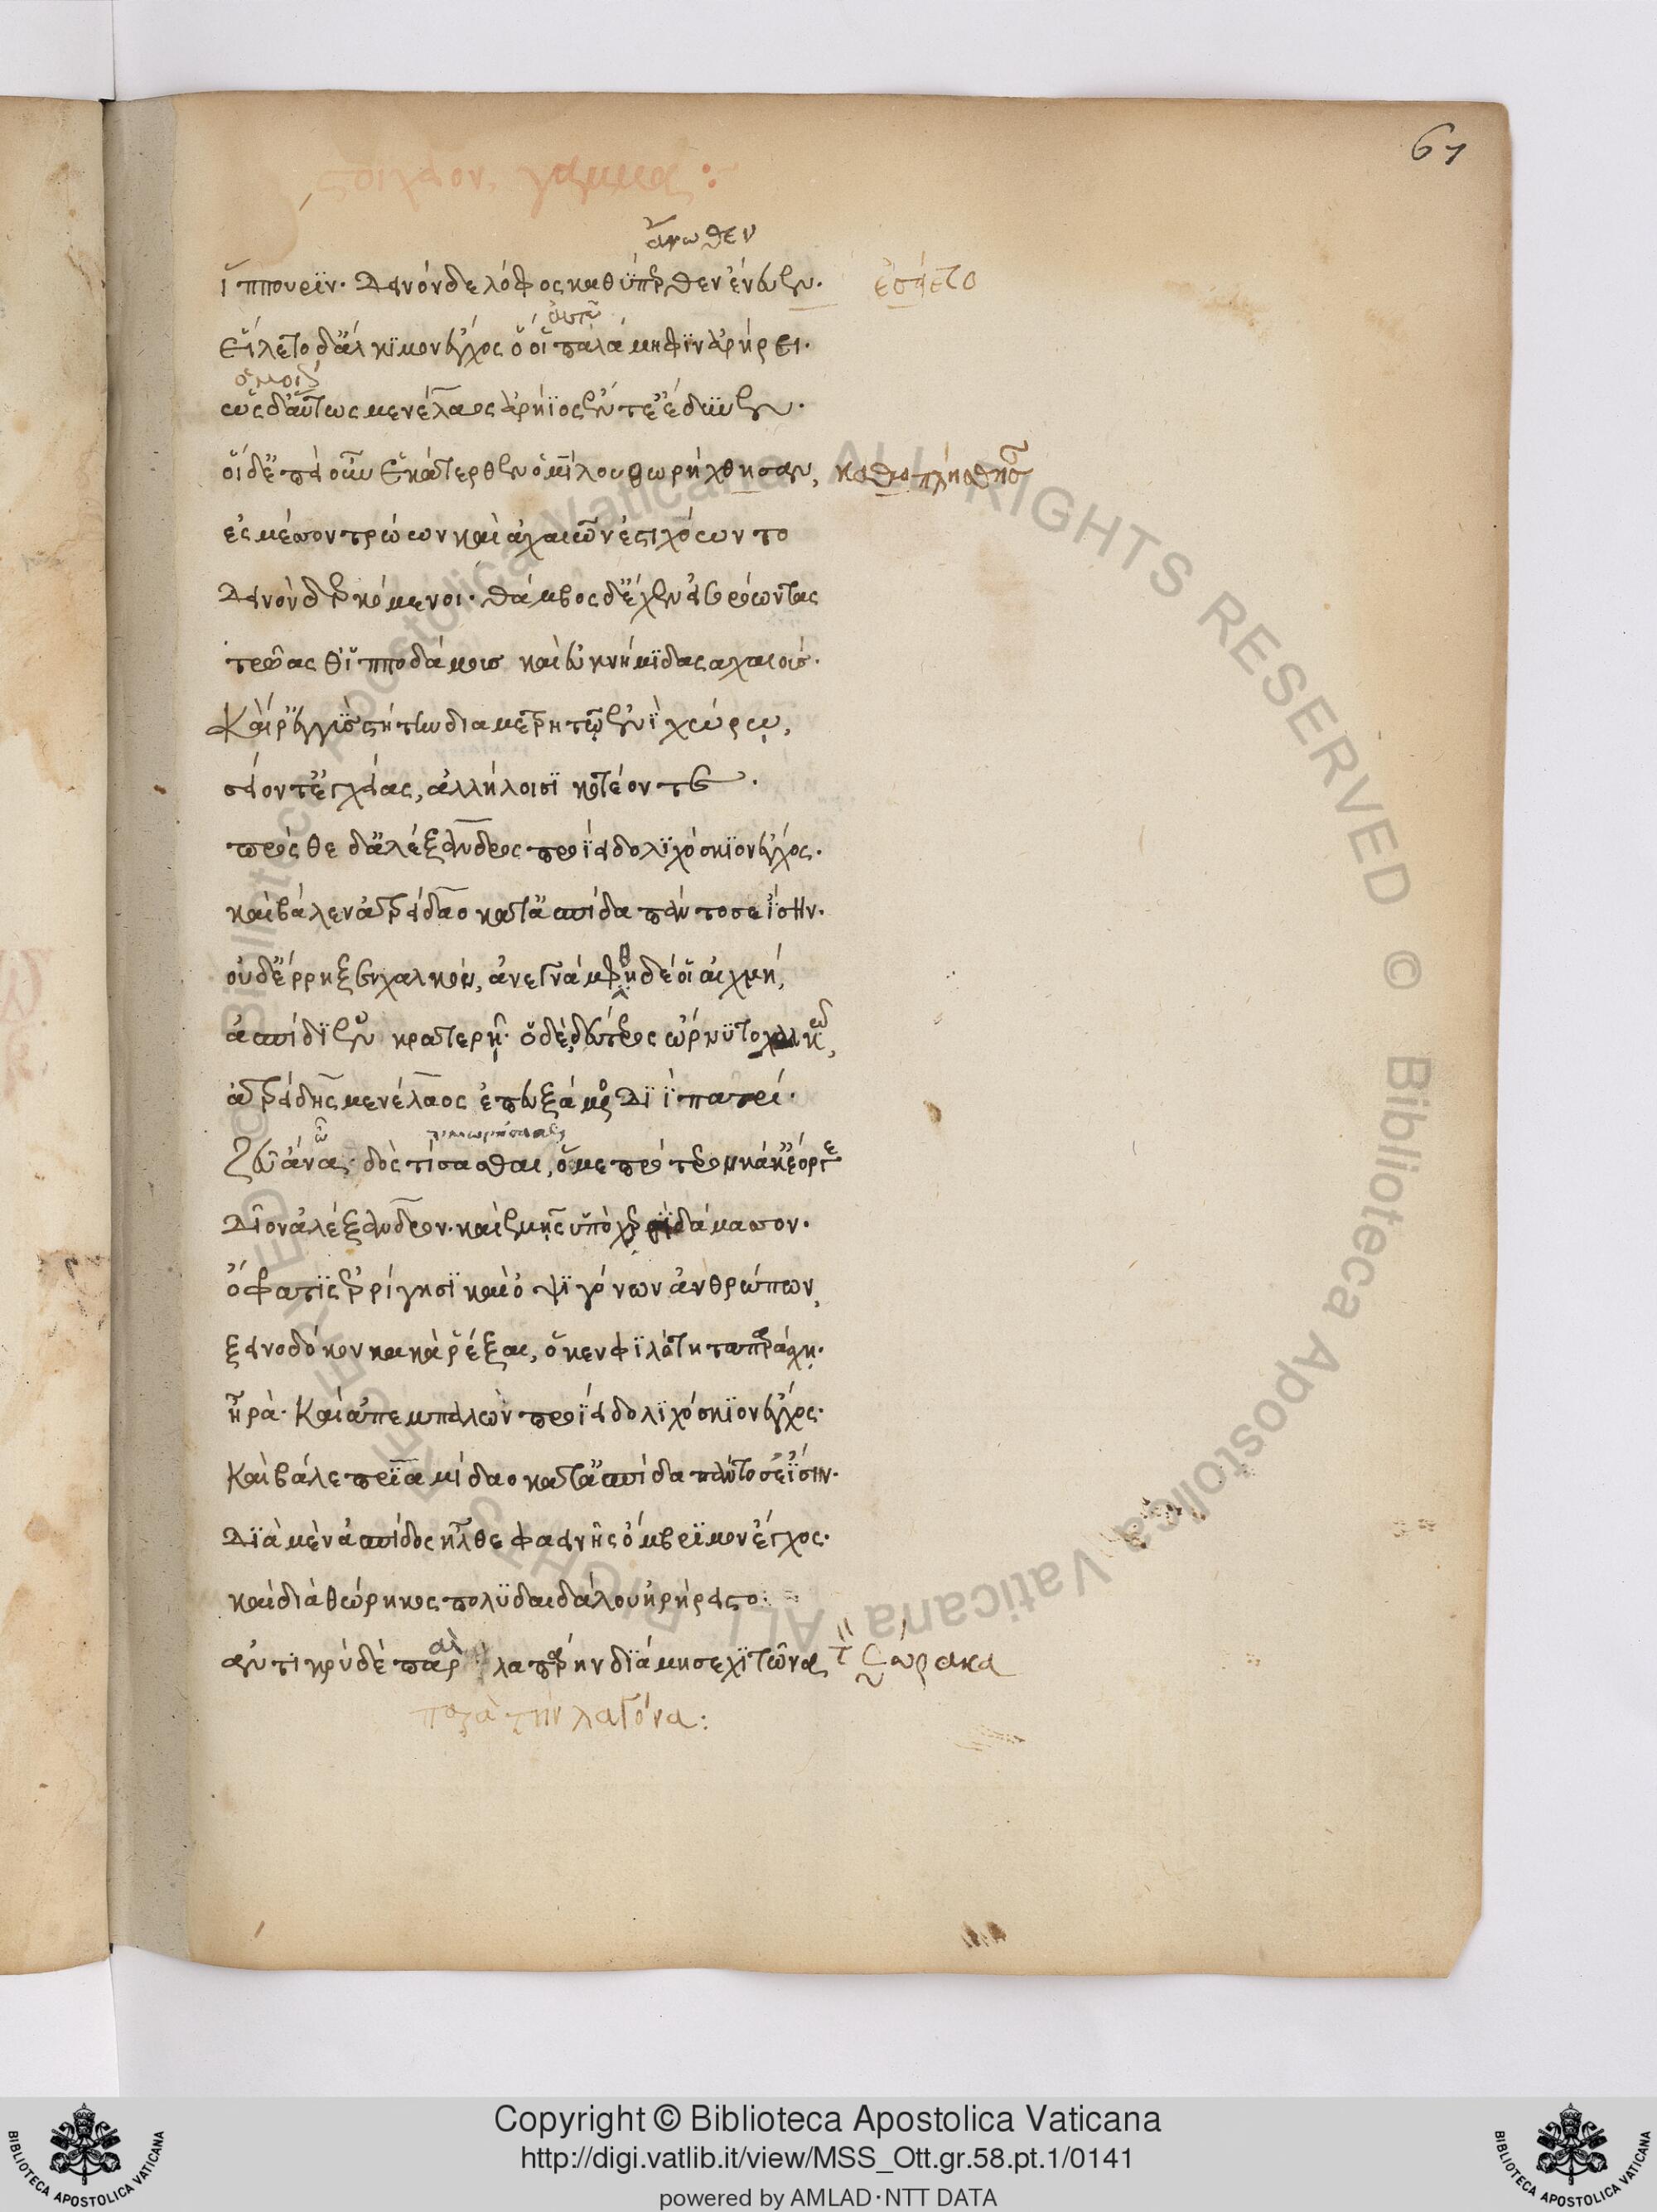 61
στοιχεῖον, γάμμα:
ἄνωθεν
ἵππουριν· δεινὸν δὲ λόφος καθύπερθεν ἔνευεν· ἐσείετο
αὐτοῦ
εἵλετο δ' ἄλκιμον ἔγχος ὅ οἱ παλάμηφιν ἀρήρει·
ὁμοίως
ὣς δ' αὔτως μενέλαος ἀρήϊος ἔντε' ἔδυνεν·
οἱ δ' ἐπεὶ οὖν ἑκάτερθεν ὁμίλου θωρήχθησαν, καθωπλίσθησαν
ἐς μέσον τρώων καὶ ἀχαιῶν ἐστιχόωντο
δεινὸν δερκόμενοι· θάμβος δ' ἔχεν εἰσορόωντας
τρῶας θ' ἱπποδάμους καὶ εὐκνήμιδας ἀχαιούς·
Καί ρ' ἐγγὺς στήτην διαμετρητῷ ἐνὶ χώρῳ,
σείοντ' ἐγχείας, ἀλλήλοισι κοτέοντε·
πρόσθε δ' ἀλέξανδρος προΐει δολιχόσκιον ἔγχος·
καὶ βάλεν ἀτρείδαο κατ' ἀσπίδα πάντοσε ἴσην·
οὐδ' ἔρρηξεν χαλκὸν, ἀνεγνάμφθη δέ οἱ αἰχμή,
ἀσπίδι ἐν κρατερῇ· ὁ δὲ δεύτερος ὤρνυτο χαλκῷ,
ἀτρείδης μενέλαος ἐπευξάμενος Διῒ πατρί·
τιμωρήσασθαι
Ζεῦ ἄνα, δὸς τίσασθαι, ὅ με πρότερον κάκ' ἔοργε
Δῖον ἀλέξανδρον· καὶ ἐμῇς ὑπὸ χερσὶ δάμασσον·
ὄφρα τις ἐρρίγησι καὶ ὀψιγόνων ἀνθρώπων,
ξεινοδόκον κακὰ ῥέξαι, ὅ κεν φιλότητα παράσχῃ·
ἦ ῥα· Καὶ ἀμπεπαλὼν προΐει δολιχόσκιον ἔγχος·
Καὶ βάλε πριαμίδαο κατ' ἀσπίδα πάντοσ' ἐΐσην·
Διὰ μὲν ἀσπίδος ἦλθε φαεινῆς ὄμβριμον ἔγχος·
καὶ διὰ θώρηκος πολυδαιδάλου ἠρήρειστο:
ἀντικρὺ δὲ παραὶ λαπάρην διάμησε χιτῶνα, τ θώρακα
παρὰ τὴν λαγόνα:
Copyright © Biblioteca Apostolica Vaticana
http://digi.vatlib.it/view/MSS_Ott.gr.58.pt.1/0141
powered by AMLAD·NTT DATA
BIBLIOTECA APOSTOLICA VATICANA
BIBLIOTECA APOSTOLICA VATICANA
© Biblioteca Apostolica Vaticana ALL RIGHTS RESERVED © Biblioteca Apostolica Vaticana ALL RIGHTS RESERVED